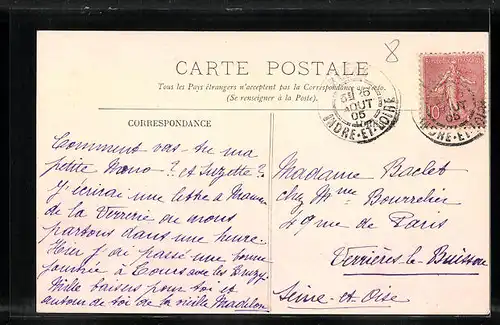 8
CARTE POSTALE
Tous les Pays étrangers n'acceptent pas la Correspondance au recto.
(Se renseigner à la Poste).
26
AOUT
05
INDRE-ET-LOIRE
10
AOUT
05
INDRE-ET-LOIRE
CORRESPONDANCE
Comment vas-tu ma
petite Mano? et Suzette?
J'écrirai une lettre à Maman
de la Verrerie où nous
partons dans une heure.
Hier j'ai passé une bonne
journée à Tours avec les
Mille baisers pour toi et
autour de toi de la vieille Madelon
Madame Baclet
chez Mme Bourrelier
49 rue de Paris
Verrières-le-Buisson
Seine-et-Oise